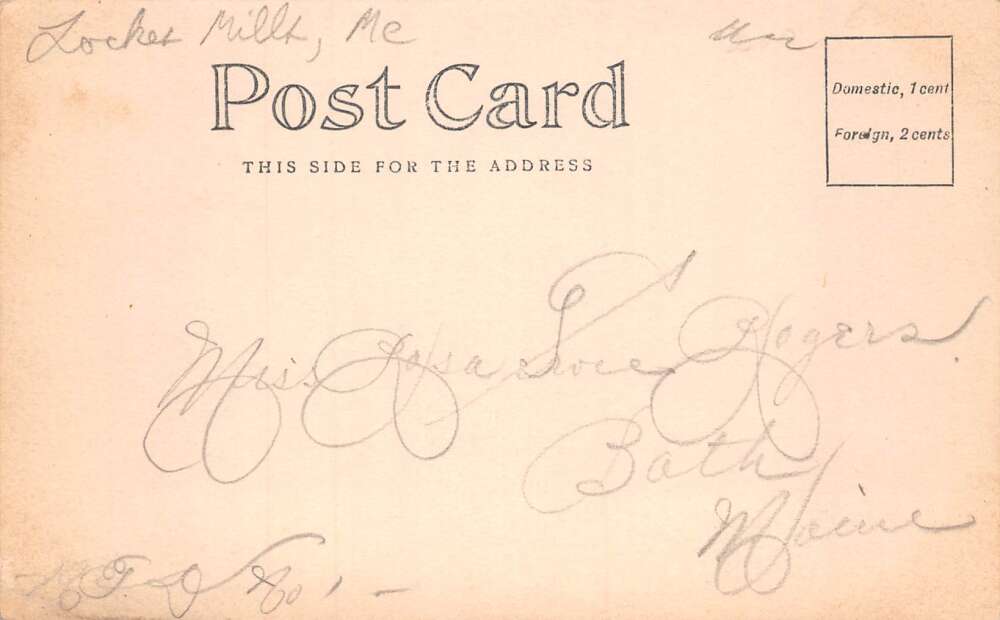 Lockes Mills, Me
Post Card
THIS SIDE FOR THE ADDRESS
Domestic, 1 cent
Foreign, 2 cents
Miss Rosa Rogers
Bath
Maine
R.F.D. No. 1